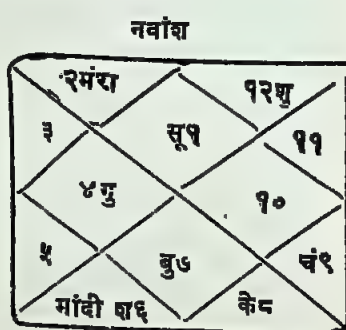 नवांश
२मंरा
१२शु
३
सू१
११
४गु
१०
५
बु७
चं९
मांदी श६
के८